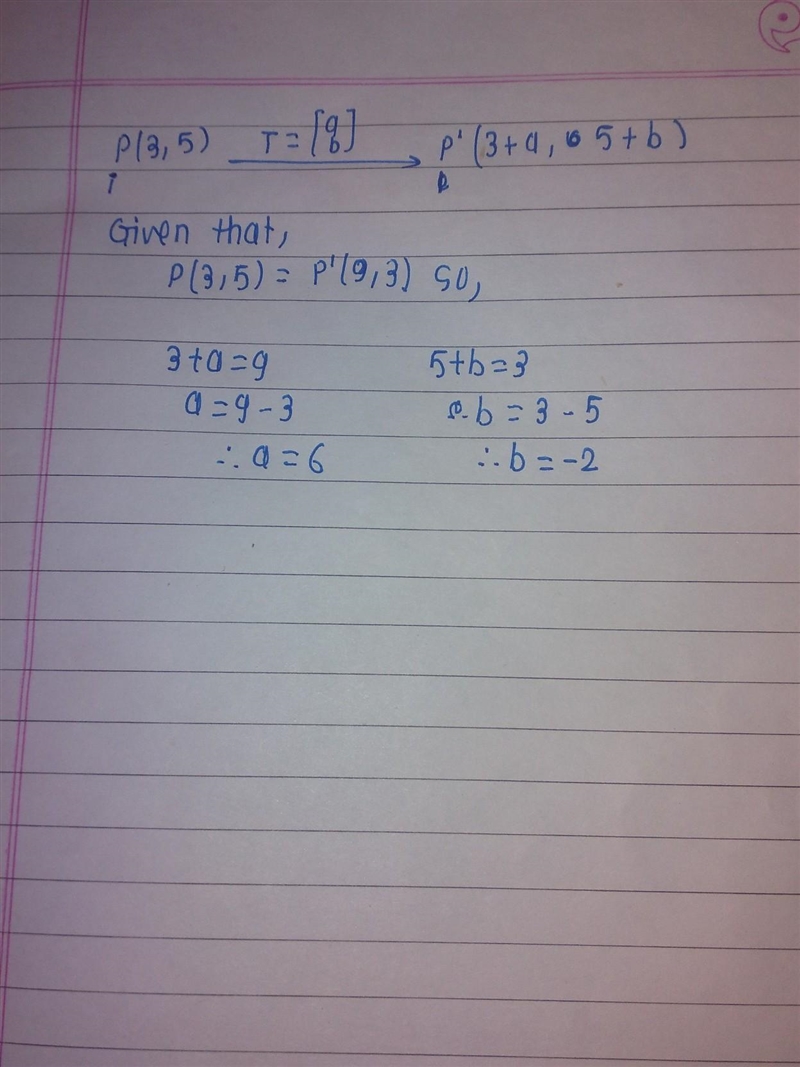 P(3, 5) T = [a b] → P'(3+a, 5+b)
Given that,
P(3, 5) = P'(9, 3) so,
3+a=9 5+b=3
a=9-3 b = 3 - 5
∴ a = 6 ∴ b = -2